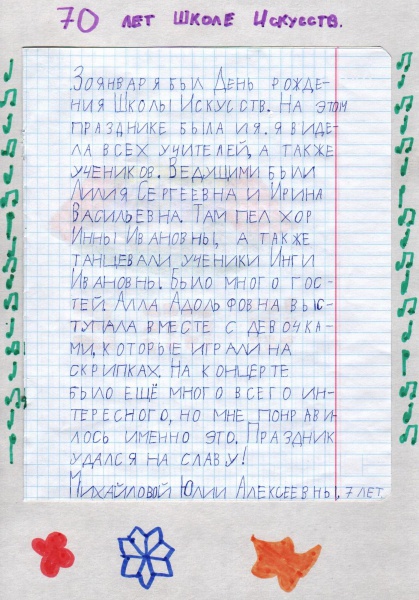 70 лет Школе Искусств.
30 января был День рожде-
ния Школы Искусств. На этом
празднике была и я. Я виде-
ла всех учителей, а также
учеников. Ведущими были
Лилия Сергеевна и Ирина
Васильевна. Там пел хор
Инны Ивановны, а также
танцевали ученики Инги
Ивановны. Было много гос-
тей. Алла Адольфовна выс-
тупала вместе с девочка-
ми, которые играли на
скрипках. На концерте
было ещё много всего ин-
тересного, но мне понрави-
лось именно это. Праздник
удался на славу!
Михайловой Юлии Алексеевны, 7 лет